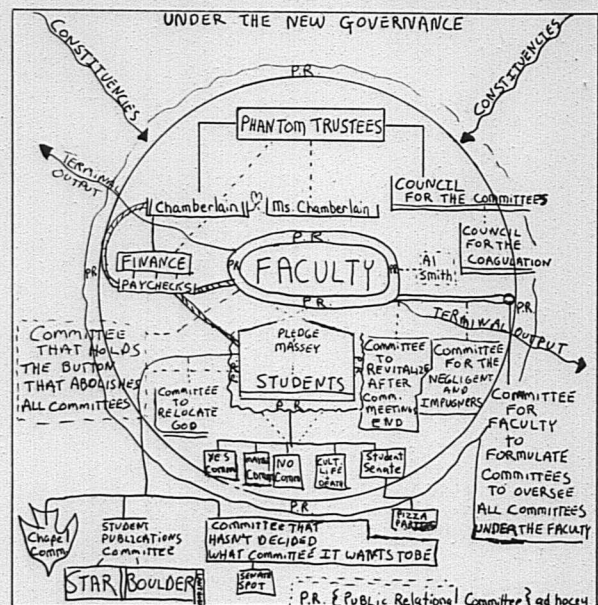 UNDER THE NEW GOVERNANCE
CONSTITUENCIES
CONSTITUENCIES
P.R.
PHANTOM TRUSTEES
TERMINAL
OUTPUT
Chamberlain
M
Ms. Chamberlain
COUNCIL
FOR THE COMMITTEES
COUNCIL
FOR THE
COAGULATION
P.R.
FACULTY
P.R.
P.R.
P.R.
Al
Smith
FINANCE
PAYCHECKS
P.R.
P.R.
TERMINAL OUTPUT
COMMITTEE
THAT HOLDS
THE BUTTON
THAT ABOLISHES
ALL COMMITTEES
COMMITTEE
TO
RELOCATE
GOD
PLEDGE
MASSEY
STUDENTS
P.R.
P.R.
P.R.
COMMITTEE
TO
REVITALIZE
AFTER
COMM.
MEETINGS
END
COMMITTEE
FOR THE
NEGLIGENT
AND
IMPUGNERS
COMMITTEE
FOR
FACULTY
TO
FORMULATE
COMMITTEES
TO OVERSEE
ALL COMMITTEES
UNDER THE FACULTY
YES
Comm
MAYBE
Comm
NO
Comm
CULT.
LIFE
DEATH
Student
Senate
PIZZA
PARTIES
P.R.
Chapel
Comm
STUDENT
PUBLICATIONS
COMMITTEE
STAR
BOULDER
COMMITTEE THAT
HASN'T DECIDED
WHAT COMMITTEE IT WANTS TO BE
SENATE
SPOT
P.R. { Public Relations Committee } ad hocey